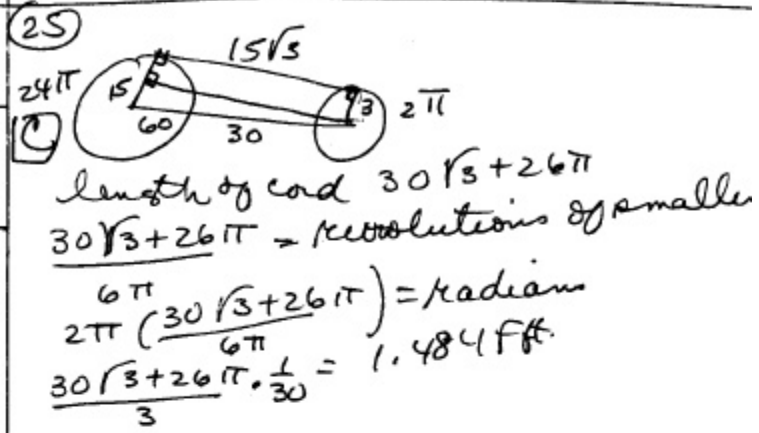 25
15√3
24π 15 3 2π
C 60 30
length of cord 30√3+26π
30√3+26π = revolutions of smaller
6π
2π (30√3+26π / 6π) = radians
30√3+26π / 3 · 1/30 = 1.484